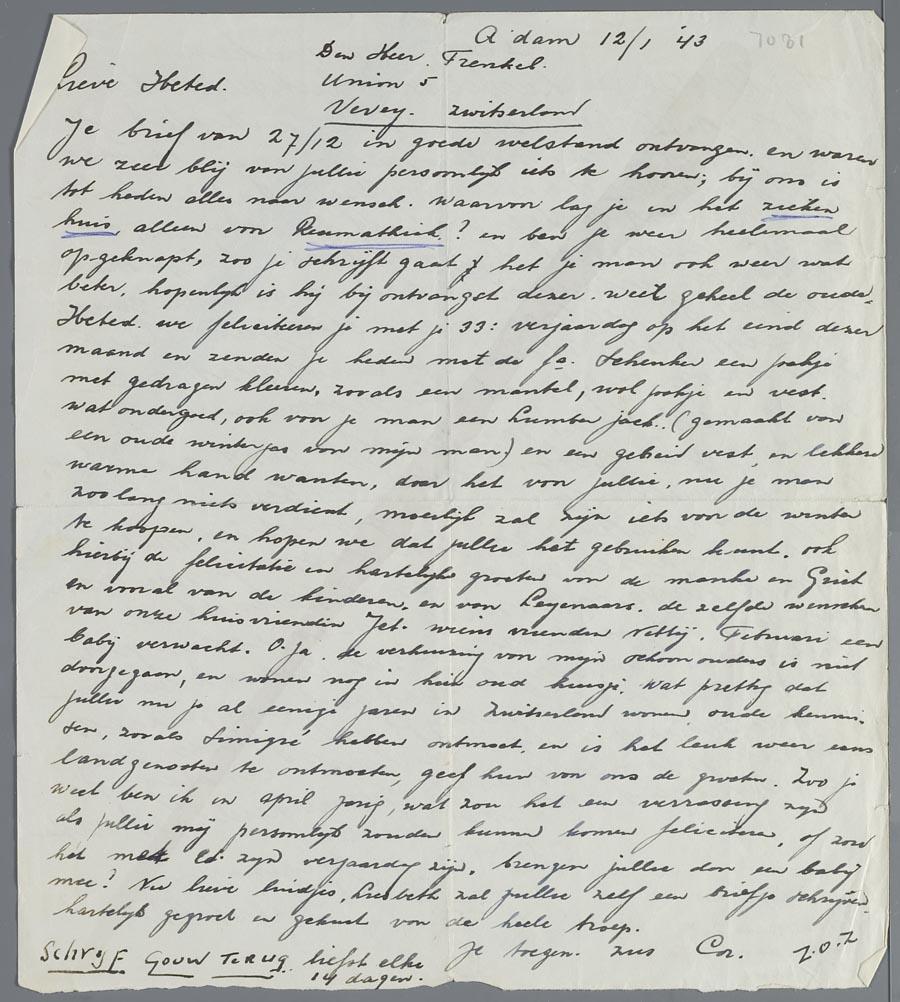 A'dam 12/1 '43
7081
Den Heer Frenkel.
Union 5
Vevey. Zwitserland
Lieve Heted.
Je brief van 27/12 in goede welstand ontvangen. en waren
we zeer blij van jullie persoonlijk iets te hooren; bij ons is
tot heden alles naar wensch. waarvoor lag je in het zieken
huis alleen voor Reumathiek? en ben je weer heelemaal
opgeknapt, zoo je schrijft gaat het je man ook weer wat
beter, hopenlijk is hij bij ontvangst dezer. weer geheel de oude.
Heted. we feliciteeren je met je 33: verjaardag op het eind dezer
maand en zenden je heden met de fa. Schenker een pakje
met gedragen kleeren, zooals een mantel, wol pakje en vest.
wat ondergoed, ook voor je man een Lumber jack.. (gemaakt van
een oude winterjas van mijn man) en een gebreid vest, en lekkere
warme hand wanten, daar het voor jullie, nu je man
zoolang niets verdient, moeilijk zal zijn iets voor de winter
te koopen, en hopen we dat jullie het gebruiken kunt. ook
hierbij de felicitatie en hartelijke groeten van de manke en Griet
en vooral van de kinderen. en van Leyenaars. de zelfde wenschen
van onze huisvriendin Jet. wiens vrienden Nettij. Februari een
baby verwacht. O ja. de verhuizing van mijn schoonouders is niet
doorgegaan, en wonen nog in hun oud huisje. wat prettig dat
jullie nu je al eenige jaren in Zwitserland wonen, oude kennis-
sen, zooals Simigré hebben ontmoet. en is het leuk weer eens
landgenooten te ontmoeten, geef hun van ons de groeten. Zoo je
weet ben ik in april jarig, wat zou het een verrassing zijn
als jullie mij persoonlijk zouden kunnen komen feliciteren, of zou
het met zijn verjaardag zijn, brengen jullie dan een baby
mee? Nu lieve kindjes, Liesbeth zal jullie zelf een briefje schrijven.
hartelijk gegroet en gekust van de heele troep.
Je toegen. zus Cor.
Schryf gouw terug liefst elke
14 dagen.